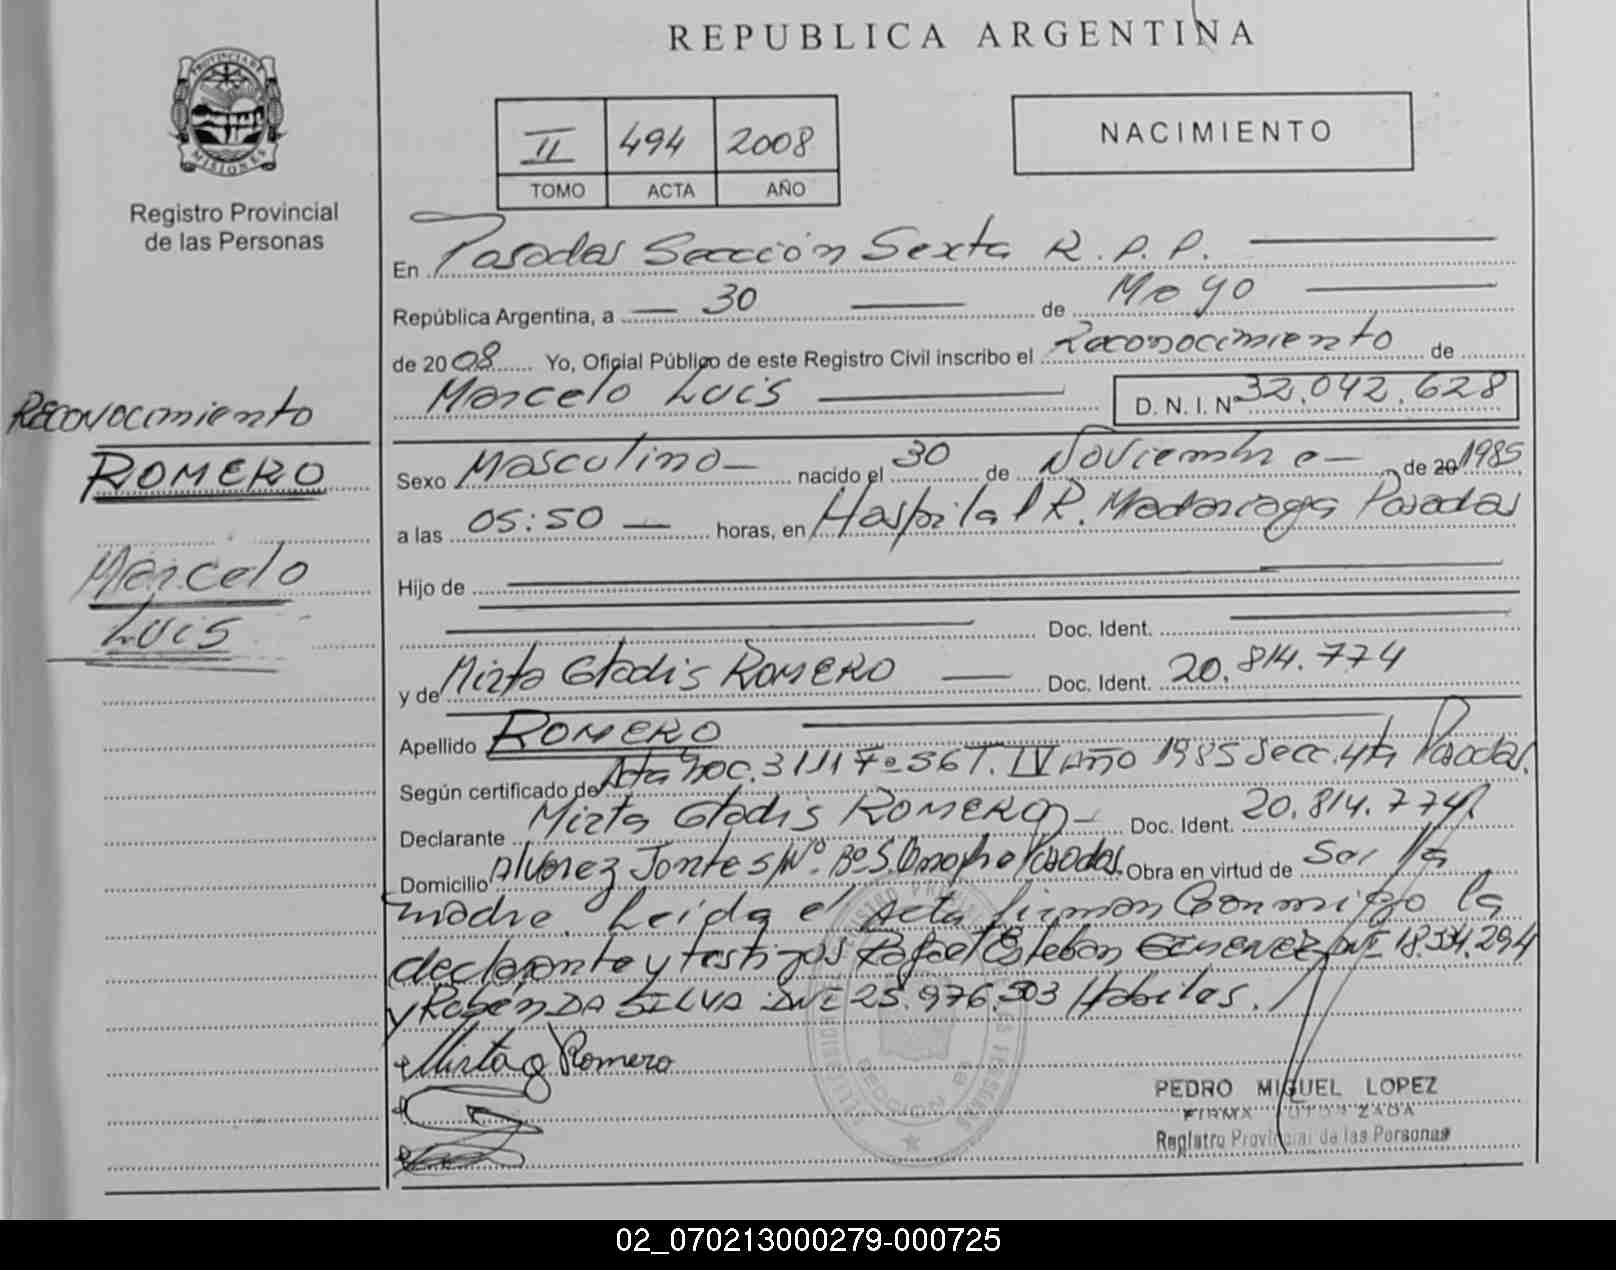 REPUBLICA ARGENTINA
PROVINCIA DE
MISIONES
Registro Provincial
de las Personas
II 494 2008
TOMO ACTA AÑO
NACIMIENTO
En Posadas Sección Sexta R.P.P.
República Argentina, a 30 de Mayo
de 2008 Yo, Oficial Público de este Registro Civil inscribo el Reconocimiento de
Marcelo Luis D.N.I. Nº 32.042.628
Reconocimiento
ROMERO
Marcelo
Luis
Sexo Masculino nacido el 30 de Noviembre de 20 1985
a las 05:50 horas, en Hospital R. Madariaga Posadas
Hijo de
Doc. Ident.
y de Mirta Gladis ROMERO Doc. Ident. 20.814.774
Apellido ROMERO
Según certificado de Acta 3111 Fº 56 T. IV Año 1985 Secc. 4ta Posadas.
Declarante Mirta Gladis ROMERO Doc. Ident. 20.814.774
Domicilio Alvarez Jonte s/Nº. Bº S. Onofre Posadas. Obra en virtud de Ser la
madre. Leída el Acta firman Conmigo la
declarante y testigos Rafael Esteban GIMENEZ DNI 18.534.294
y Rubén DA SILVA DNI 25.976.503 Hábiles.
Mirta g Romero
PEDRO MIGUEL LOPEZ
FIRMA AUTORIZADA
Registro Provincial de las Personas
02_070213000279-000725